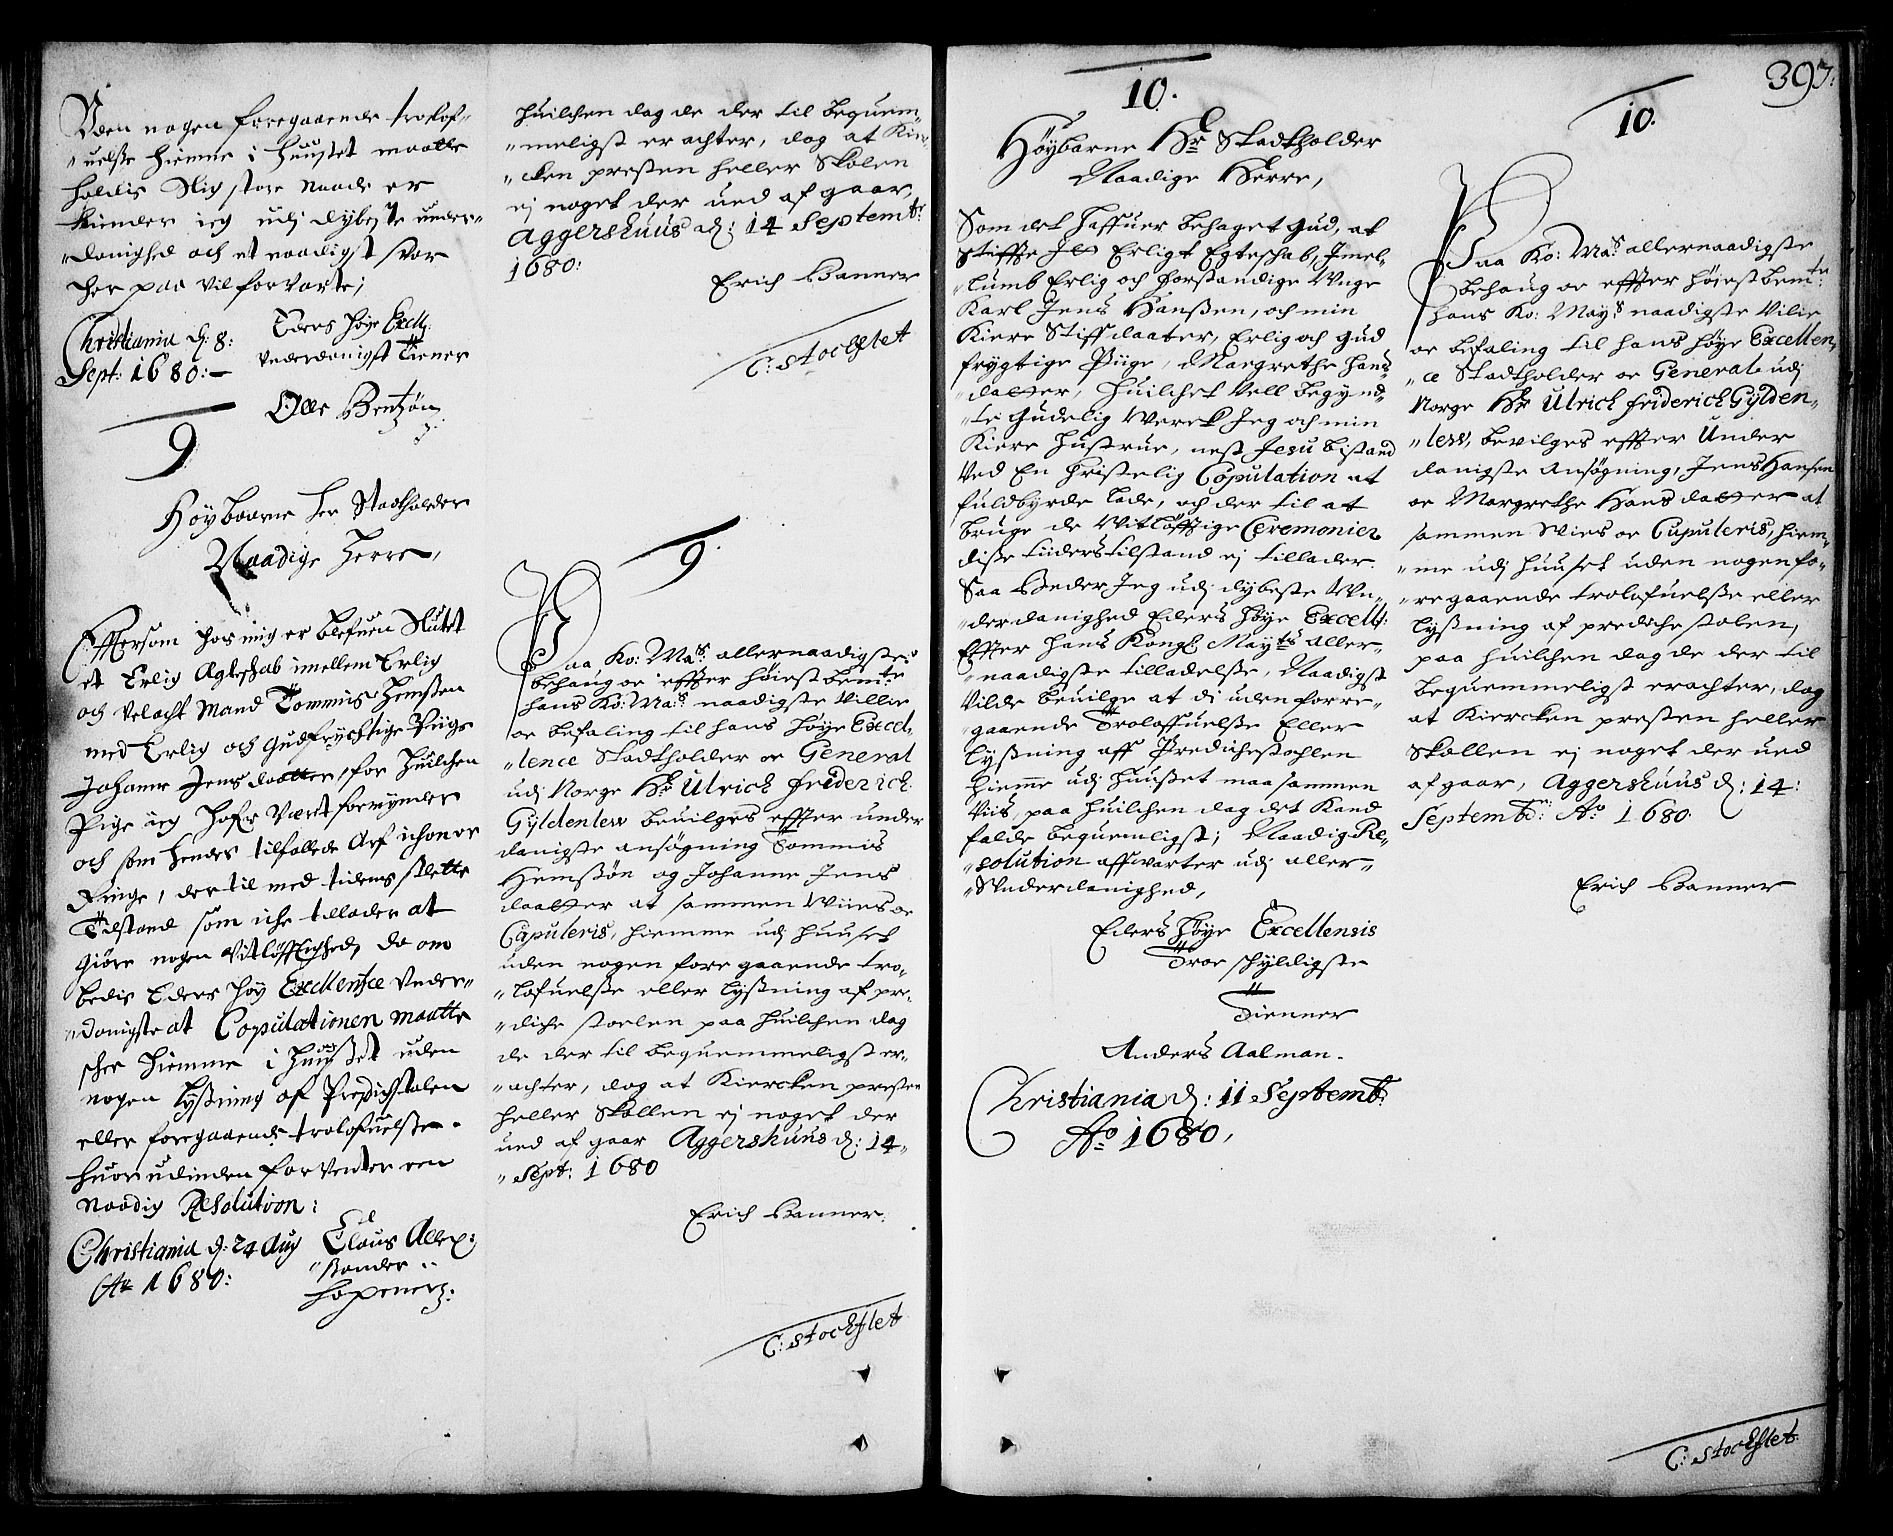 Uden nogen foregaaende trolof„
„uelße hiemme i huuset maatte
holdis Slig store Naade er
kiender ieg udj dybeste under„
„danighed och et naadigst svar
her paa vil forvarte;
Christiania d: 8:
Sept: 1680:—
Eders høye Excell:
underdanigst Tiener
Olle Bentzøn
9
Høybaarne Her Stadtholder
Naadige Herre,
Effter som hos mig er blefuen Slutet
et Erlig Ægteskab imellem Erlig
och velacht Mand Tommis Hemßen
med Erlig och Gudfrychtige Piige
Johanne Jens daatter, for huilchen
Pige ieg hafr været formynder
och som hendes tilfallede Arf ichon er
Ringe, der til med tidens slette
Tilstand som iche tillader at
giøre nogen vitløfftighed, da om
bedis Eders høy Excellentze Under„
„danigste at Copulationen maatte
schee hiemme i huußet uden
nogen lyßning af Predichstolen
eller foregaaende trolofuelße.
huor udinden forventer een
Naadig Resolution:
Christiania d: 24 Aug
Ao 1680:
Claus Allex:
„sander
hopener:
huilchen dag de der til beqvem„
„meligst erachter, dog at Kier„
„cken presten heller Skolen
ej noget der ued af gaar,
Aggershuus d: 14 Septembr
1680:
Erich Banner
C: Stockflet
9
Paa Ko: Mas allernaadigste
behaug oc effter høiest bemte
hans Ko: Mas naadigste Villie
oc befaling til hans høye Excel„
„lence Stadtholder oc General
udj Norge Hr Ulrich friderich
Gyldenlew beuilges effter under
danigste ansøgning Tommis
Hemßøn og Johanne Jens
daatter at sammen Wiies oc
Capuleris, hiemme udj huuset
uden nogen fore gaaende tro„
„lofuelße eller lyßning af pre„
„diche stoelen paa huilchen dag
de der til bequemmeligst er„
„achter, dog at Kiercken presten
heller Skollen ej noget der
ued af gaar Aggershuus d: 14„
„Sept: 1680
Erich Banner.
C: Stockflet
397.
10.
Høybarne Hr Stadtholder
Naadige Herre,
Som det haffuer behaget Gud, at
stiffte Et Erligt Egteschab, Imel„
„lumb Erlig och forstandige Unge
Karl Jens Hanßen, och min
Kiere Stiffdaater, Erlig och Gud
frygtige Piige, Margrethe Hans
datter, huilchet vell begynd„
„te Gudelig Werck Jeg och min
Kiere hustrue, nest Jesu bistand
Ved En Christelig Copulation at
fuldbyrde lade, och der til at
bruge de Vitløfftige Ceremonier
disse tiiders tilstand ej tillader.
Saa beder Jeg udj dybeste Un„
„derdanighed Eders høye Excell:
Effter hans Kongl: Mayts aller„
„naadigste tilladelse, Naadigst
Vilde beuilge at di uden forre„
„gaaende Troloffuelße Eller
Lyßning aff Predichestohlen
hieme udj huußet maa sammen
Viis, paa huilchen dag det Kand
falde bequemligst; Naadig Re„
„solution affwarter udj aller„
„Underdanighed,
Eders høye Excellensis
Troe schyldigste
Tienner
Anders Aalman.
Christiania d: 11 Septemb:
Ao 1680,
10.
Paa Ko: Mas allernaadigste
behaug oc effter høiest bemte:
hans Ko: Mays naadigste Vilie
oc befaling til hans høye Excellen„
„ce Stadtholder oc General udj
Norge Hr Ulrich friderich Gylden„
„lew, bevilges effter Under
danigste Ansøgning, Jens Hansen
oc Margrethe Hans datter at
sammen Vies oc Cupuleris, hiem„
„me udj huuset uden nogen fo„
„regaaende trolofuelße eller
lyßning af prediche stolen,
paa huilchen dag de der til
bequemmeligst erachter, dog
at Kiercken presten heller
Skollen ej noget der ued
af gaar, Aggershuus d: 14:
Septembr: Ao 1680.
Erich Banner
C: Stockflet.